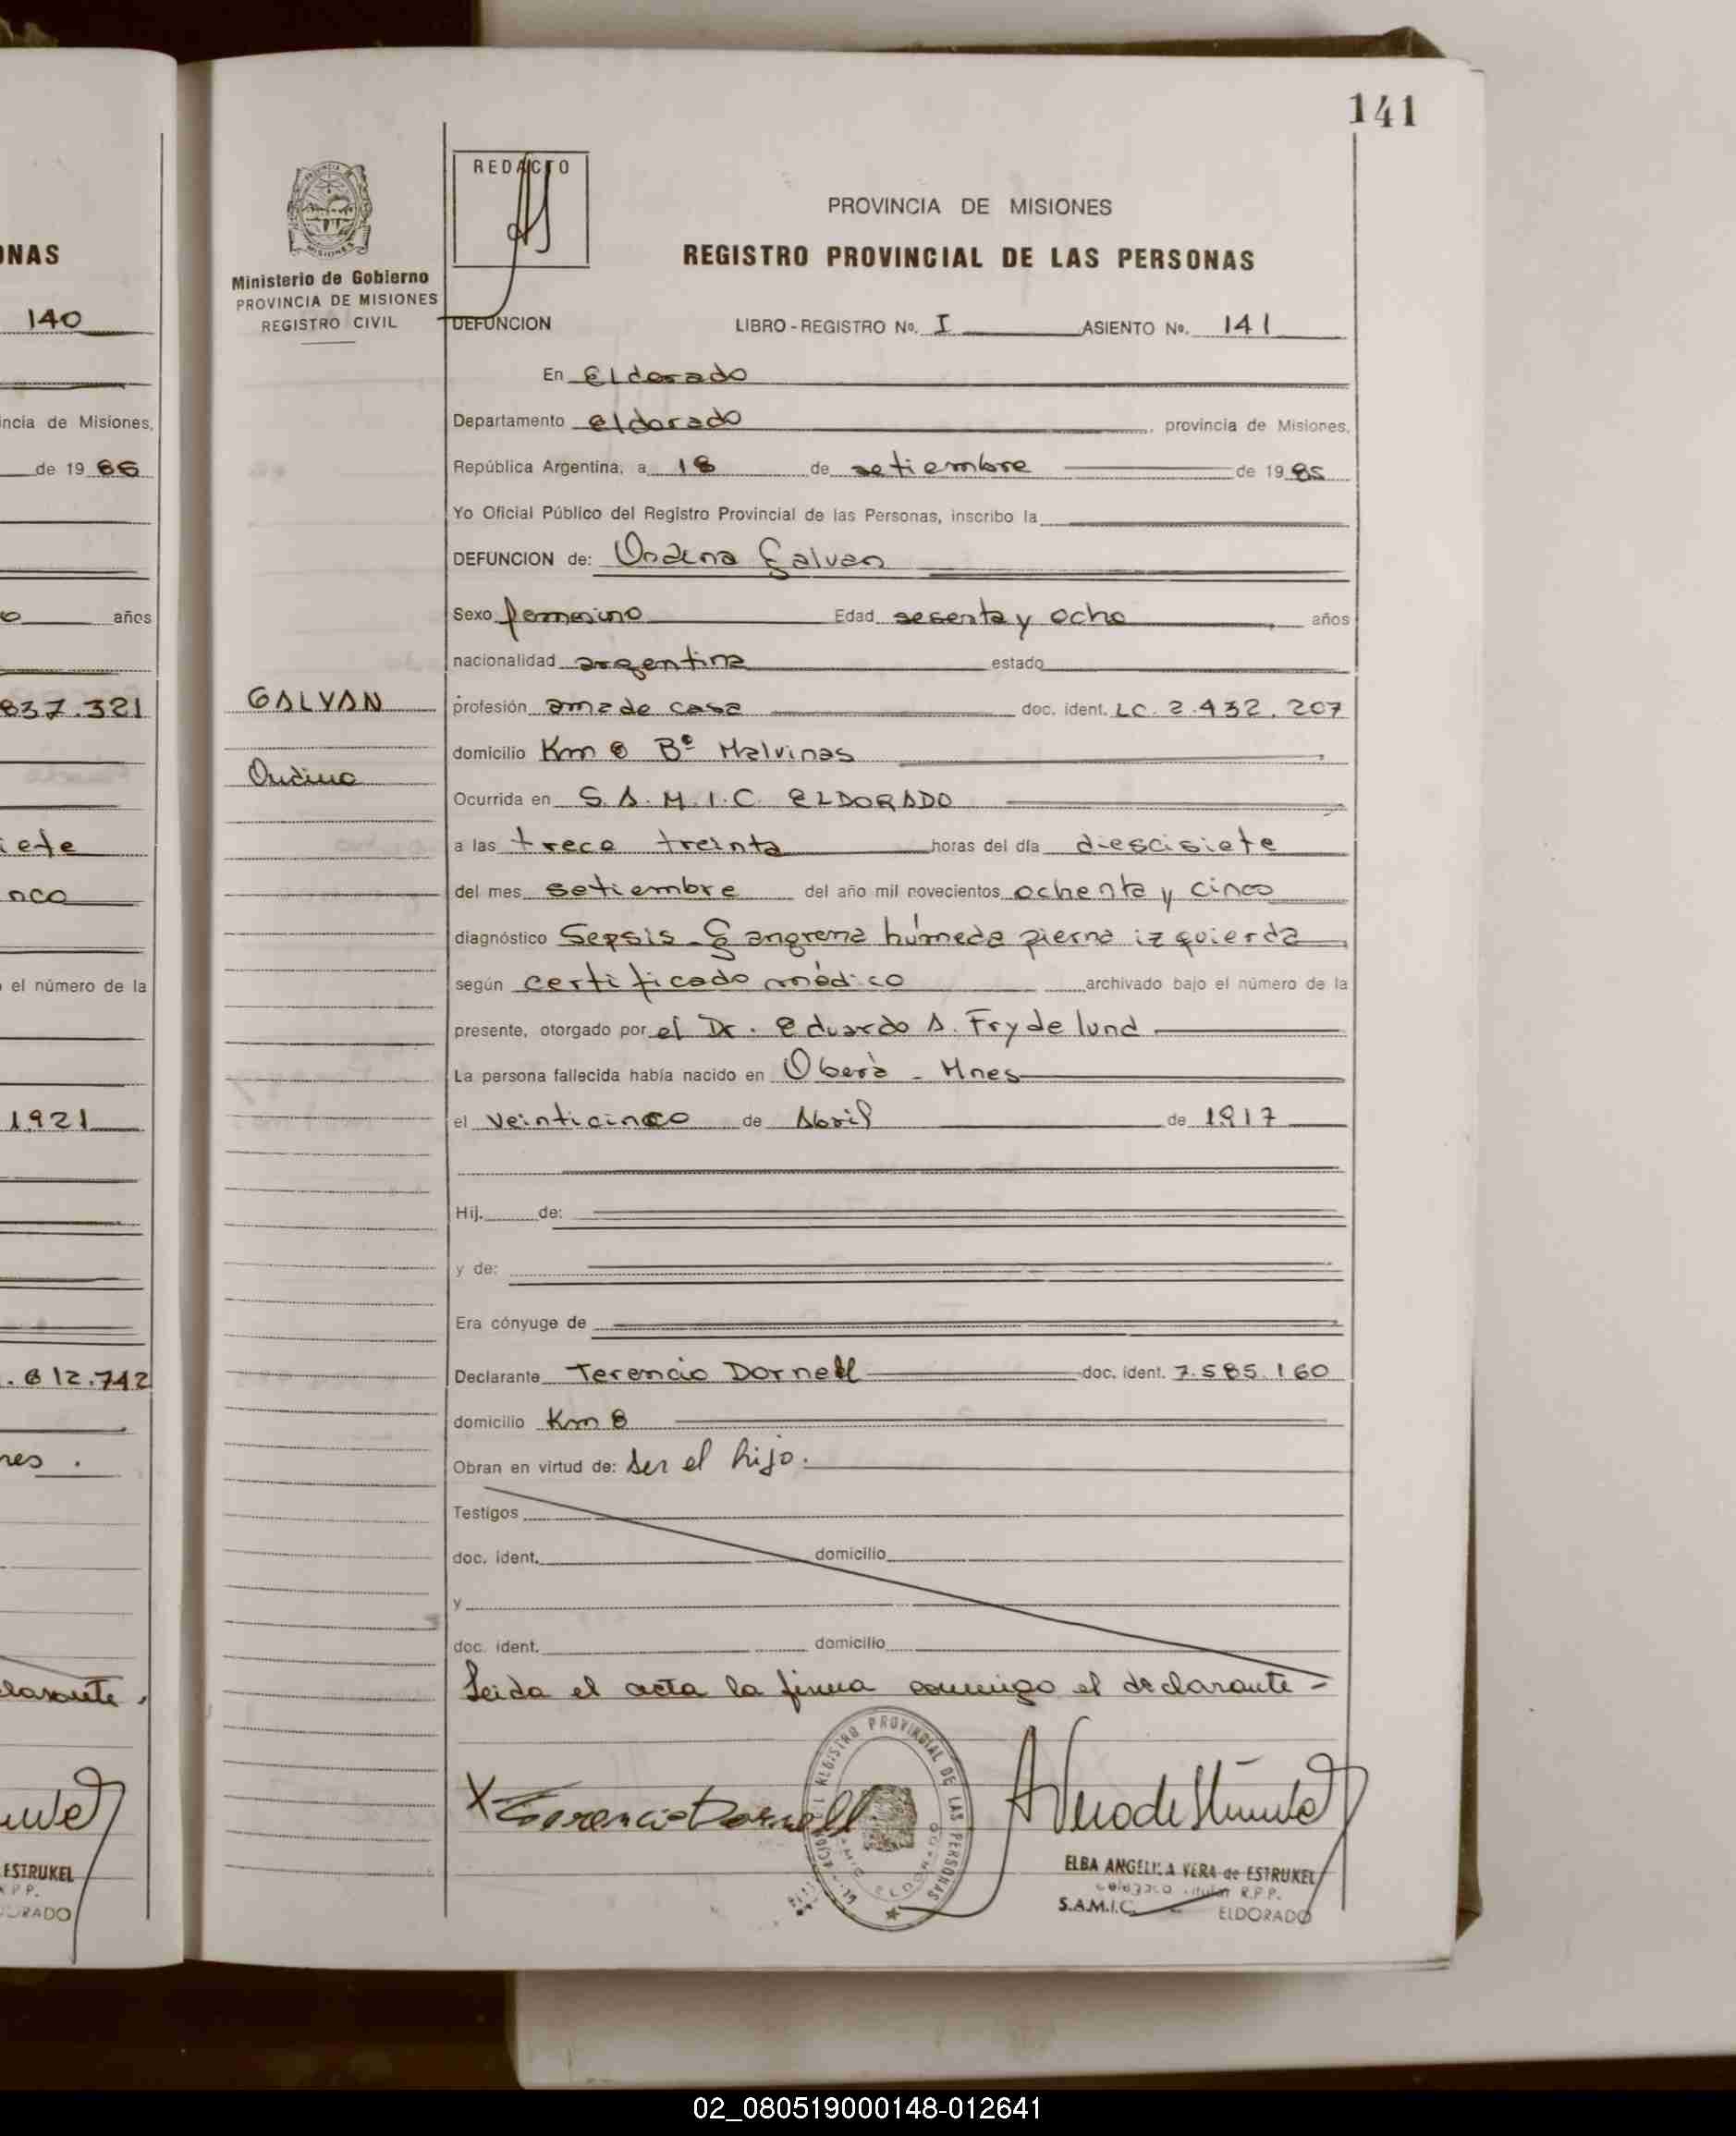 141
REDACTO
PROVINCIA DE MISIONES
REGISTRO PROVINCIAL DE LAS PERSONAS
Ministerio de Gobierno
PROVINCIA DE MISIONES
REGISTRO CIVIL
DEFUNCION LIBRO - REGISTRO No. I ASIENTO No. 141
En Eldorado
Departamento eldorado, provincia de Misiones,
República Argentina, a 18 de setiembre de 1985
Yo Oficial Público del Registro Provincial de las Personas, inscribo la
DEFUNCION de: Ondina Galvan
Sexo femenino Edad sesenta y ocho años
nacionalidad argentina estado
GALVAN
Ondina
profesión ama de casa doc. ident. LC. 2.432.207
domicilio Km 8 Bº Malvinas
Ocurrida en S.A.M.I.C. ELDORADO
a las trece treinta horas del día diescisiete
del mes setiembre del año mil novecientos ochenta y cinco
diagnóstico Sepsis - Gangrena húmeda pierna izquierda
según certificado médico archivado bajo el número de la
presente, otorgado por el Dr. Eduardo A. Frydelund
La persona fallecida había nacido en Oberà - Mnes
el veinticinco de Abril de 1917
Hij. de:
y de:
Era cónyuge de
Declarante Terencio Dornell doc. ident. 7.585.160
domicilio Km 8
Obran en virtud de: ser el hijo.
Testigos
doc. ident. domicilio
y
doc. ident. domicilio
Leida el acta la firma conmigo el declarante =
X Terencio Dornell
REGISTRO PROVINCIAL DE LAS PERSONAS
ELDORADO
ELBA ANGELICA VERA de ESTRUKEL
titular R.P.P.
S.A.M.I.C. ELDORADO
ONAS
140
incia de Misiones,
de 19 86
años
837.321
iete
nco
el número de la
1921
.612.742
res .
larante,
ESTRUKEL
02_080519000148-012641